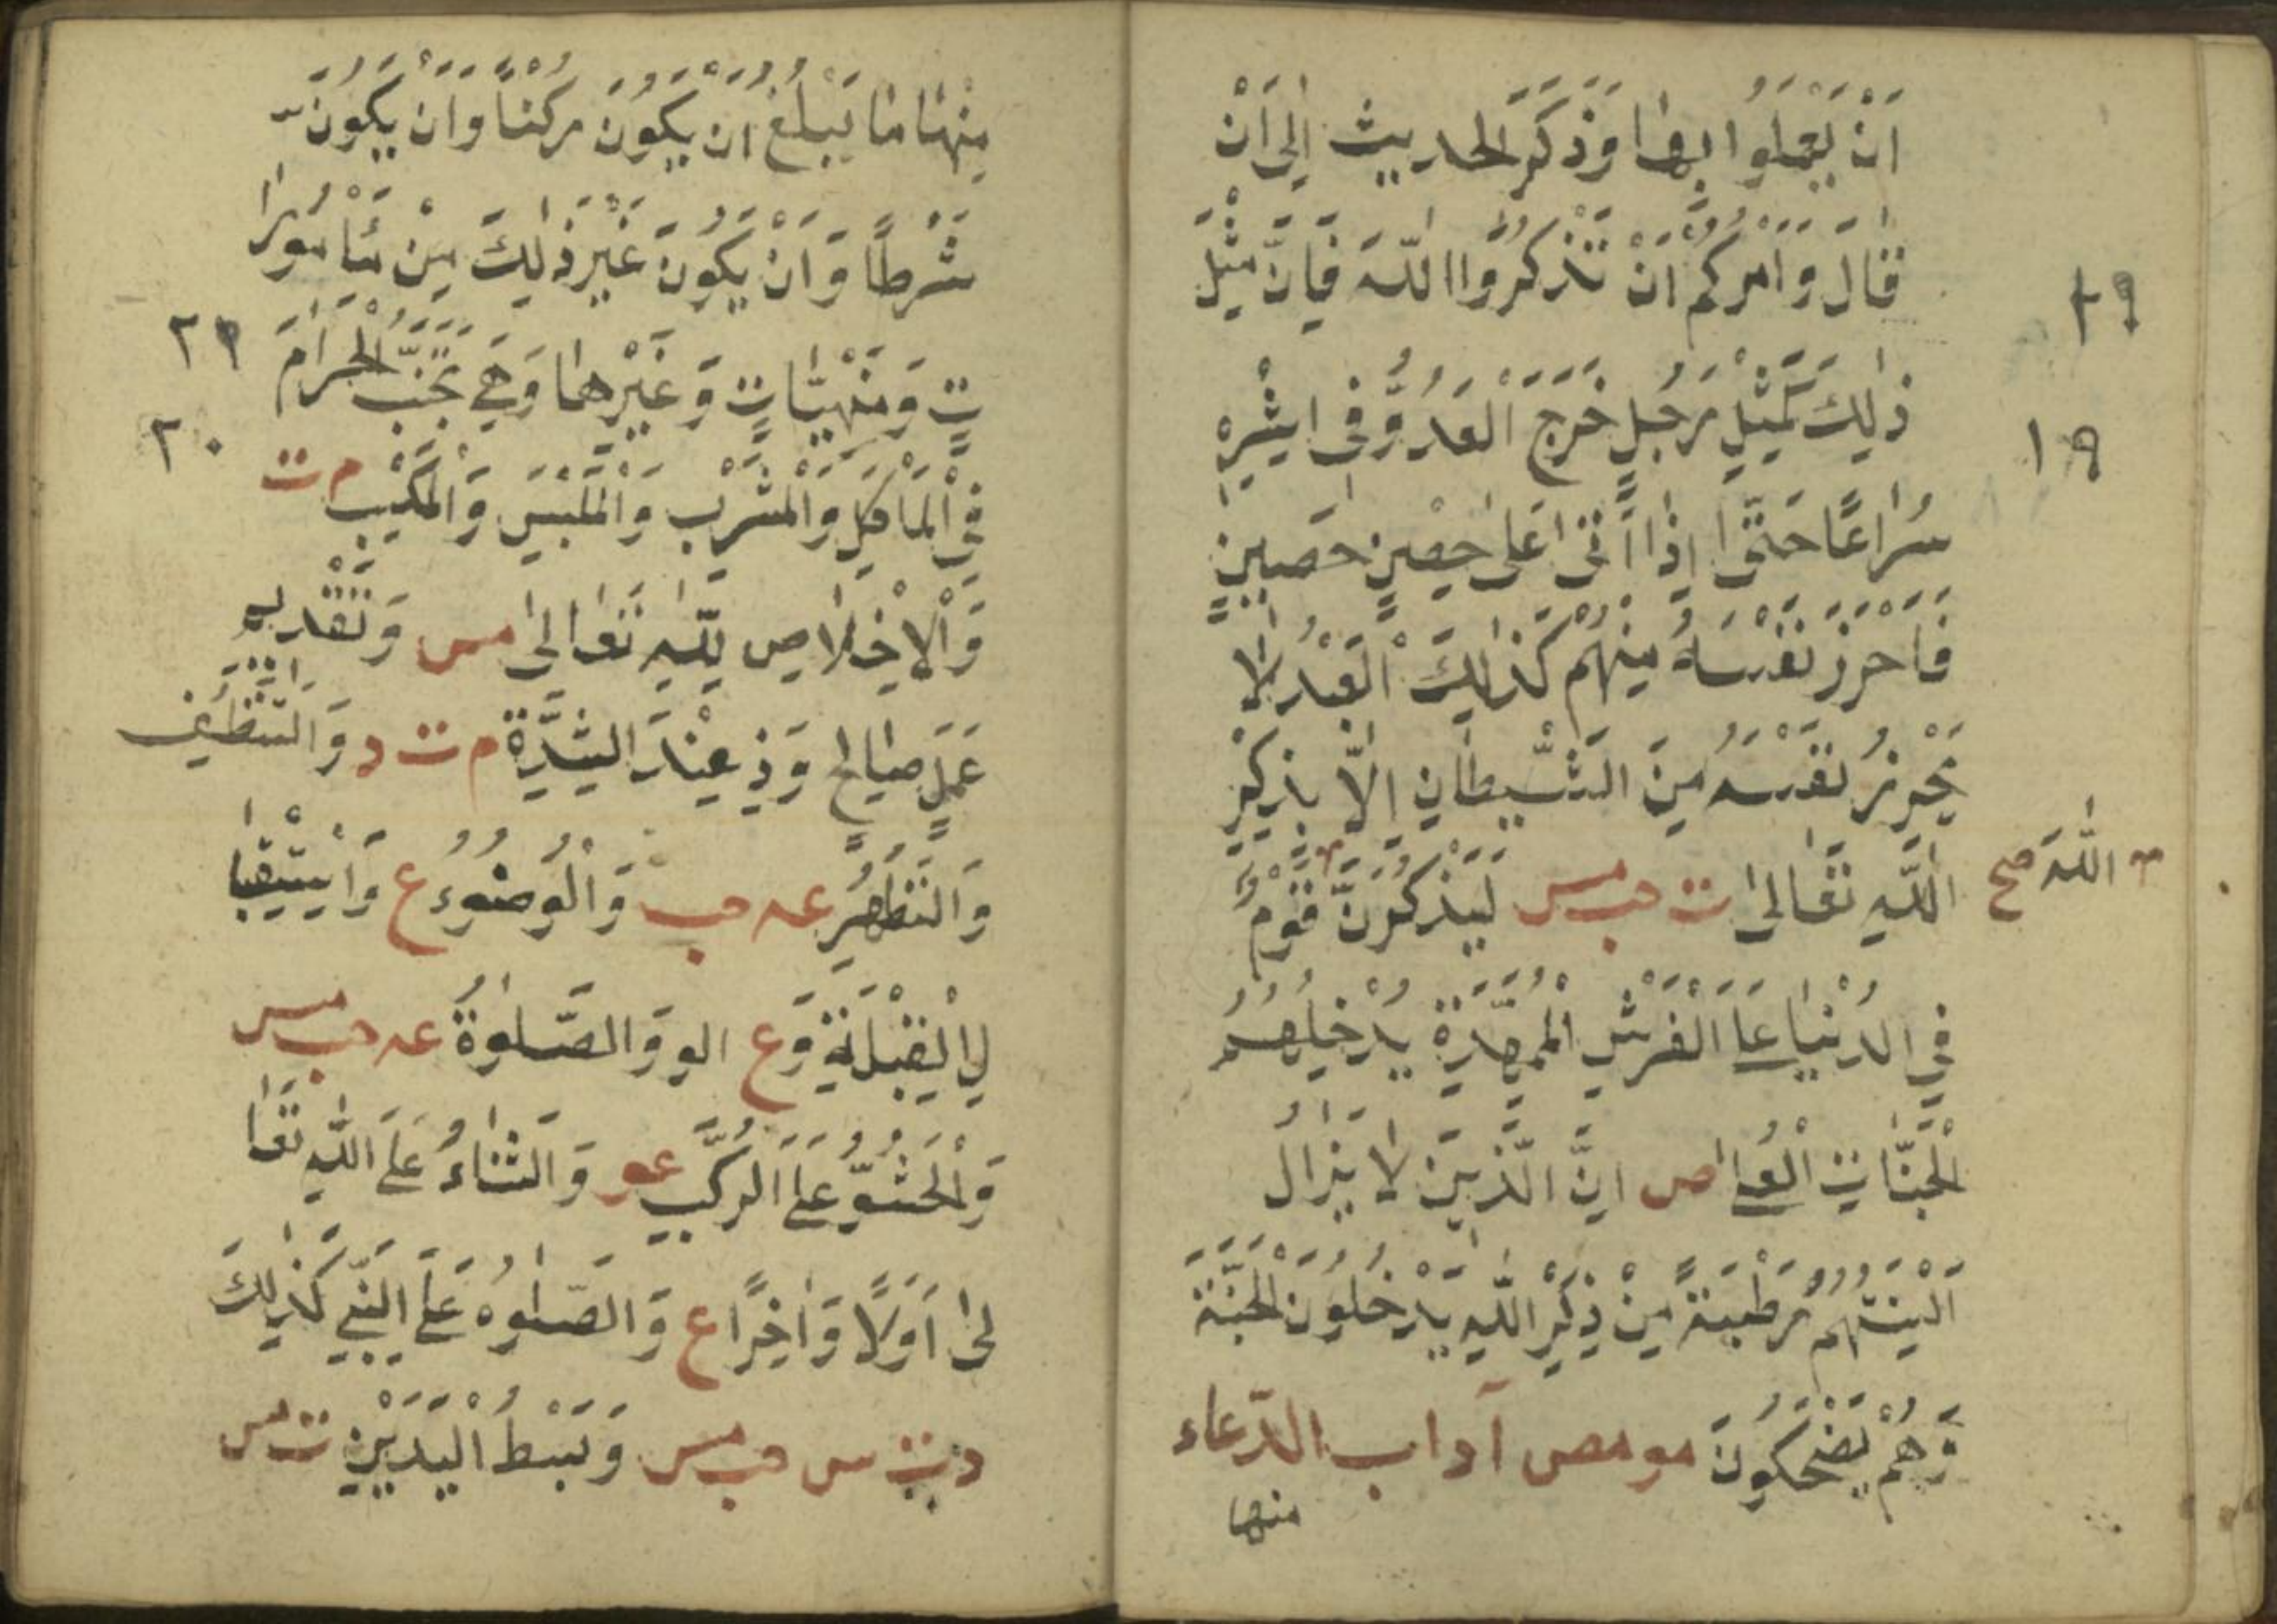 اَنْ يَعْمَلُوا بِهَا وَذَكَرَ الْحَدِيثَ اِلٰى اَنْ
قَالَ وَاٰمُرُكُمْ اَنْ تَذْكُرُوا اللّٰهَ فَاِنَّ مَثَلَ
٢٩
ذٰلِكَ كَمَثَلِ رَجُلٍ خَرَجَ الْعَدُوُّ فِى اِثْرِهِ
١٩
سِرَاعًا حَتّٰى اِذَا اَتٰى عَلٰى حِصْنٍ حَصِينٍ
فَاَحْرَزَ نَفْسَهُ مِنْهُمْ كَذٰلِكَ الْعَبْدُ لَا
يُحْرِزُ نَفْسَهُ مِنَ الشَّيْطَانِ اِلَّا بِذِكْرِ
اللّٰهِ تَعَالٰى ت حب مس لَيَذْكُرَنَّ قَوْمٌ
اللّٰهَ صح
فِي الدُّنْيَا عَلَى الْفُرُشِ الْمُمَهَّدَةِ يُدْخِلُهُمُ
الْجَنَّاتِ الْعُلٰى ص اِنَّ الَّذِينَ لَا يَزَالُ
اَلْسِنَتُهُمْ رَطْبَةً مِنْ ذِكْرِ اللّٰهِ يَدْخُلُونَ الْجَنَّةَ
وَهُمْ يَضْحَكُونَ مو مص آداب الدّعاء
منها
مِنْهَا مَا يَبْلُغُ اَنْ يَكُونَ رُكْنًا وَاَنْ يَكُونَ
شَرْطًا وَاَنْ يَكُونَ غَيْرَ ذٰلِكَ مِنْ مَأْمُورَا
تٍ وَمَنْهِيَّاتٍ وَغَيْرِهِمَا وَهِيَ تَجَنُّبُ الْحَرَامِ
٢٩
فِي الْمَأْكَلِ وَالْمَشْرَبِ وَالْمَلْبَسِ وَالْمَكْسَبِ م ت
٢٠
وَالْاِخْلَاصِ لِلّٰهِ تَعَالٰى مس وَتَقْدِيمِ
عَمَلٍ صَالِحٍ وَذِ عِنْدَ الشِّدَّةِ م ت د وَالتَّنَظُّفِ
وَالتَّطَهُّرِ عه حب وَالْوُضُوءُ ع وَاسْتِقْبَا
لِ الْقِبْلَةِ وَ ع الو وَالصَّلٰوةُ عه حب مس
وَالْجُثُوُّ عَلَى الرُّكَبِ عو وَالثَّنَاءُ عَلَى اللّٰهِ تَعَا
لٰى اَوَّلًا وَاٰخِرًا ع وَالصَّلٰوةُ عَلَى النَّبِيِّ كَذٰلِكَ
د ت س حب مس وَبَسْطُ الْيَدَيْنِ ت مس